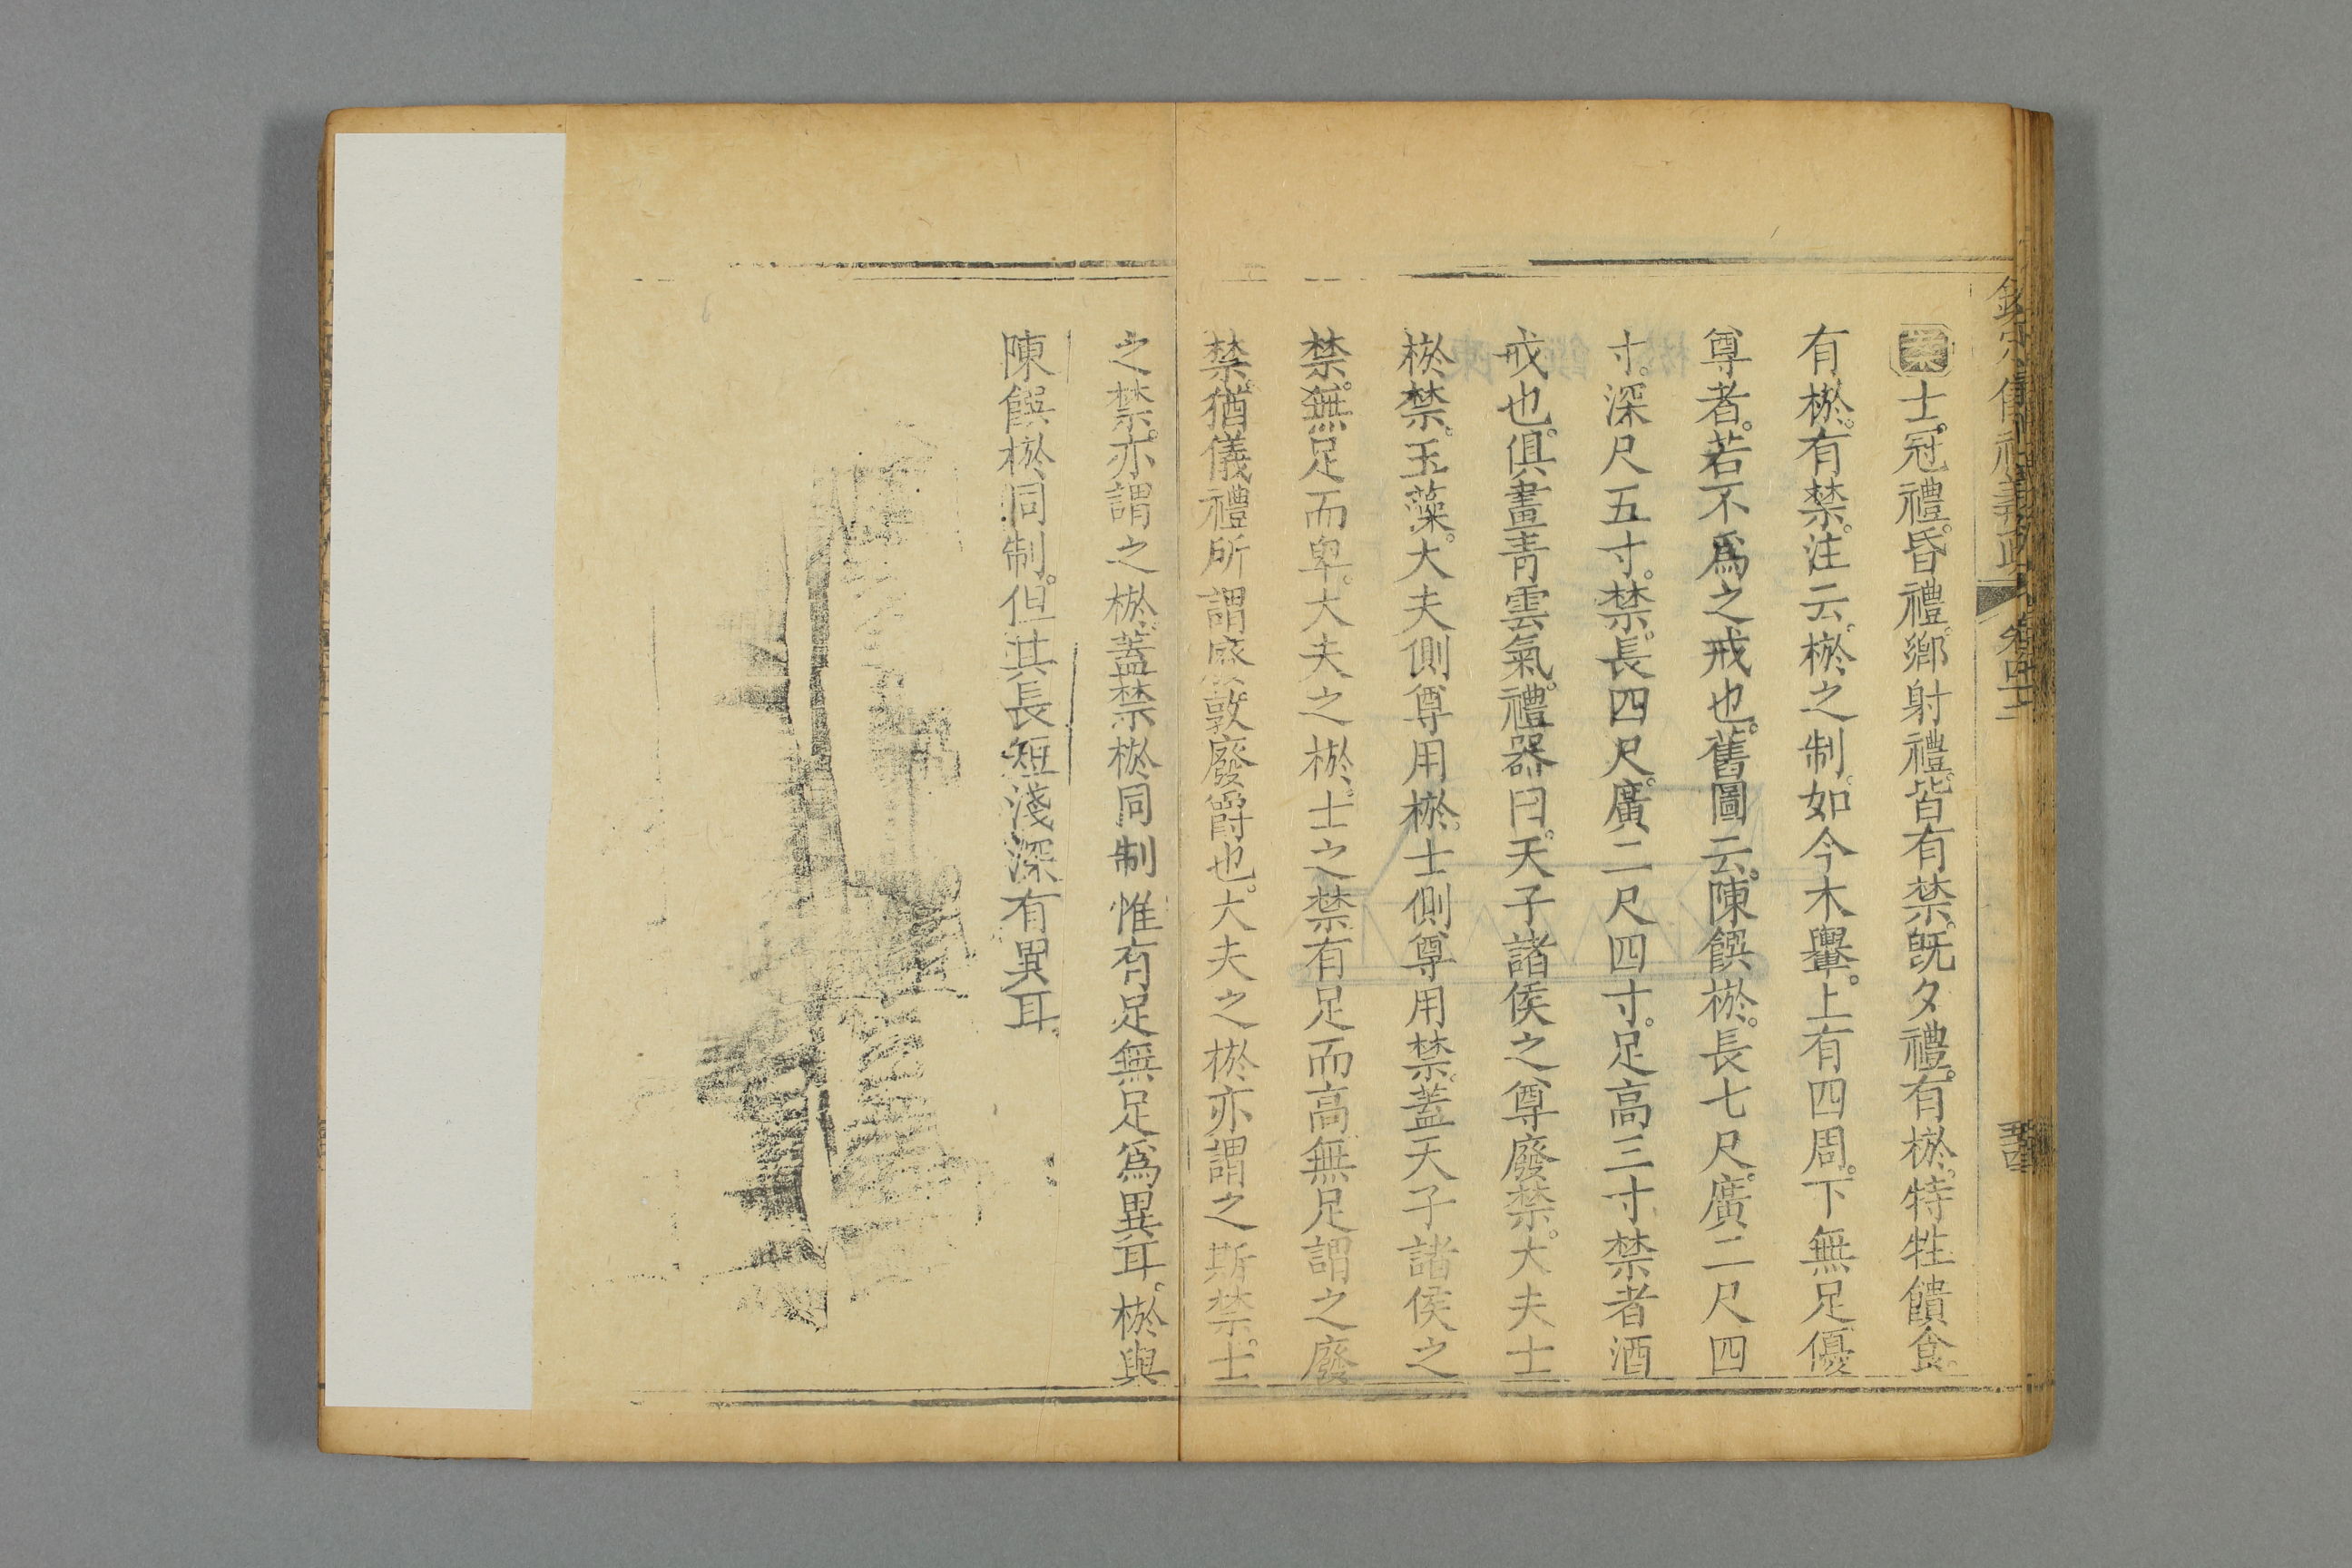 欽定儀禮義疏 卷四十二
案士冠禮。昏禮。鄉射禮。皆有禁。旣夕禮。有棜。特牲饋食。
有棜。有禁。注云。棜之制。如今木轝。上有四周。下無足。優
尊者。若不爲之戒也。舊圖云。陳饌棜。長七尺。廣二尺四
寸。深尺五寸。禁。長四尺。廣二尺四寸。足高三寸。禁者酒
戒也。俱畫青雲氣。禮器曰。天子諸侯之尊廢禁。大夫士
棜禁。玉藻。大夫側尊用棜。士側尊用禁。蓋天子諸侯之
禁。無足而卑。大夫之棜。士之禁有足而高無足謂之廢
禁。猶儀禮所謂廢敦廢爵也。大夫之棜亦謂之斯禁。士
之禁。亦謂之棜。蓋禁棜同制惟有足無足爲異耳。棜與
陳饌棜同制。但其長短淺深有異耳